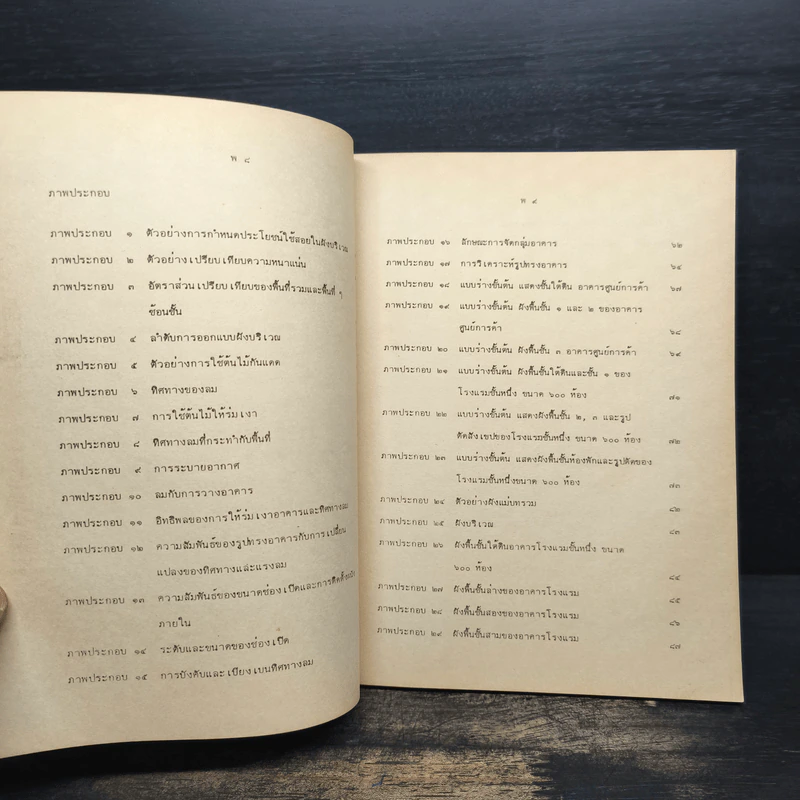 พ ๘
ภาพประกอบ
ภาพประกอบ ๑ ตัวอย่างการกำหนดประโยชน์ใช้สอยในผังบริเวณ
ภาพประกอบ ๒ ตัวอย่างเปรียบเทียบความหนาแน่น
ภาพประกอบ ๓ อัตราส่วนเปรียบเทียบของพื้นที่รวมและพื้นที่ ๆ
ซ้อนชั้น
ภาพประกอบ ๔ ลำดับการออกแบบผังบริเวณ
ภาพประกอบ ๕ ตัวอย่างการใช้ต้นไม้กันแดด
ภาพประกอบ ๖ ทิศทางของลม
ภาพประกอบ ๗ การใช้ต้นไม้ให้ร่มเงา
ภาพประกอบ ๘ ทิศทางลมที่กระทำกับพื้นที่
ภาพประกอบ ๙ การระบายอากาศ
ภาพประกอบ ๑๐ ลมกับการวางอาคาร
ภาพประกอบ ๑๑ อิทธิพลของการให้ร่มเงาอาคารและทิศทางลม
ภาพประกอบ ๑๒ ความสัมพันธ์ของรูปทรงอาคารกับการเปลี่ยน
แปลงของทิศทางและแรงลม
ภาพประกอบ ๑๓ ความสัมพันธ์ของขนาดช่องเปิดและการติดตั้ง
ภายใน
ภาพประกอบ ๑๔ ระดับและขนาดของช่องเปิด
ภาพประกอบ ๑๕ การบังคับและเบี่ยงเบนทิศทางลม
พ ๙
ภาพประกอบ ๑๖ ลักษณะการจัดกลุ่มอาคาร ๖๒
ภาพประกอบ ๑๗ การวิเคราะห์รูปทรงอาคาร ๖๔
ภาพประกอบ ๑๘ แบบร่างขั้นต้น แสดงชั้นใต้ดิน อาคารศูนย์การค้า ๖๗
ภาพประกอบ ๑๙ แบบร่างขั้นต้น ผังพื้นชั้น ๑ และ ๒ ของอาคาร
ศูนย์การค้า ๖๘
ภาพประกอบ ๒๐ แบบร่างขั้นต้น ผังพื้นชั้น ๓ อาคารศูนย์การค้า ๖๙
ภาพประกอบ ๒๑ แบบร่างขั้นต้น ผังพื้นชั้นใต้ดินและชั้น ๑ ของ
โรงแรมชั้นหนึ่ง ขนาด ๖๐๐ ห้อง ๗๑
ภาพประกอบ ๒๒ แบบร่างขั้นต้น แสดงผังพื้นชั้น ๒, ๓ และรูป
ตัดสังเขปของโรงแรมชั้นหนึ่ง ขนาด ๖๐๐ ห้อง ๗๒
ภาพประกอบ ๒๓ แบบร่างขั้นต้น แสดงผังพื้นชั้นห้องพักและรูปตัดของ
โรงแรมชั้นหนึ่งขนาด ๖๐๐ ห้อง ๗๓
ภาพประกอบ ๒๔ ตัวอย่างผังแม่บทรวม ๘๒
ภาพประกอบ ๒๕ ผังบริเวณ ๘๓
ภาพประกอบ ๒๖ ผังพื้นชั้นใต้ดินอาคารโรงแรมชั้นหนึ่ง ขนาด
๖๐๐ ห้อง ๘๔
ภาพประกอบ ๒๗ ผังพื้นชั้นล่างของอาคารโรงแรม ๘๕
ภาพประกอบ ๒๘ ผังพื้นชั้นสองของอาคารโรงแรม ๘๖
ภาพประกอบ ๒๙ ผังพื้นชั้นสามของอาคารโรงแรม ๘๗